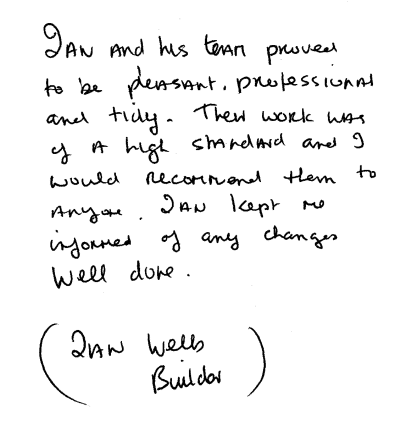 Ian and his team proved
to be pleasant, professional
and tidy. Their work was
of a high standard and I
would recommend them to
anyone. Ian kept me
informed of any changes
Well done.
(Ian Wells
Builder)